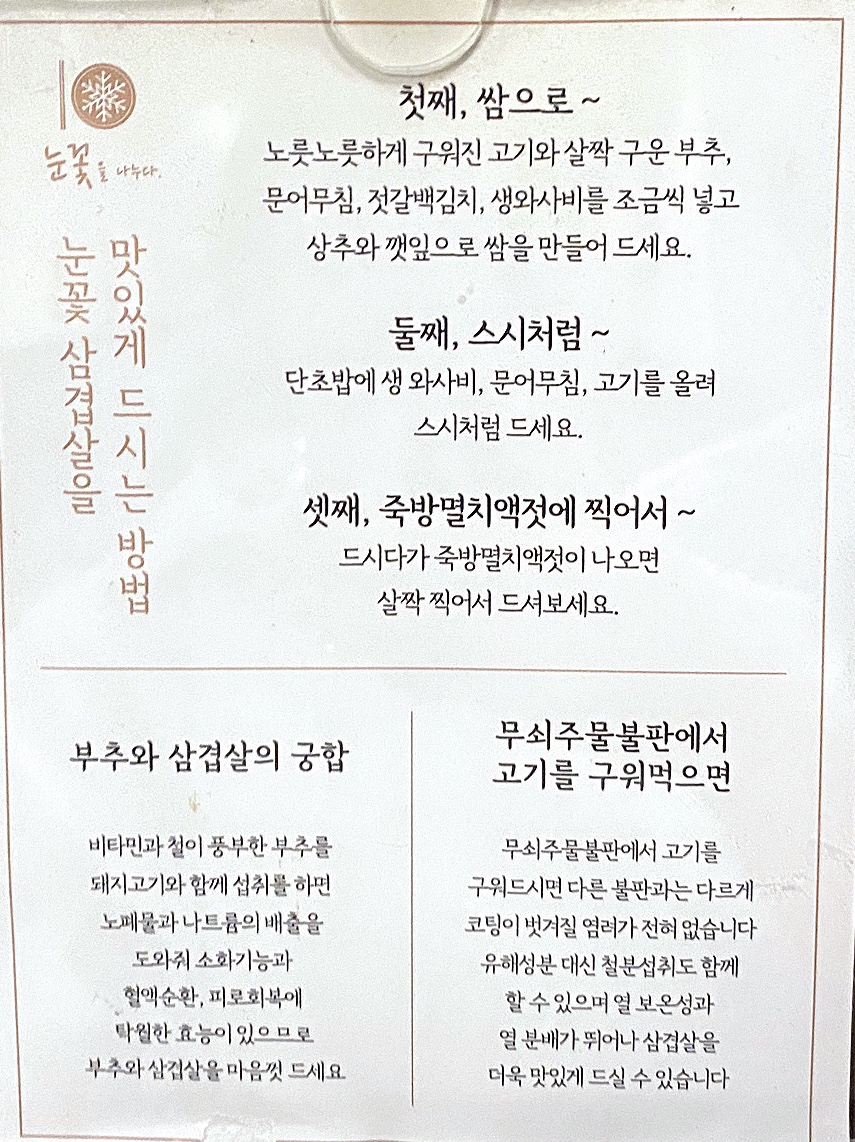 눈꽃을 나누다.
눈꽃 삼겹살을
맛있게 드시는 방법
첫째, 쌈으로 ~
노릇노릇하게 구워진 고기와 살짝 구운 부추,
문어무침, 젓갈백김치, 생와사비를 조금씩 넣고
상추와 깻잎으로 쌈을 만들어 드세요.
둘째, 스시처럼 ~
단초밥에 생 와사비, 문어무침, 고기를 올려
스시처럼 드세요.
셋째, 죽방멸치액젓에 찍어서 ~
드시다가 죽방멸치액젓이 나오면
살짝 찍어서 드셔보세요.
부추와 삼겹살의 궁합
비타민과 철이 풍부한 부추를
돼지고기와 함께 섭취를 하면
노폐물과 나트륨의 배출을
도와줘 소화기능과
혈액순환, 피로회복에
탁월한 효능이 있으므로
부추와 삼겹살을 마음껏 드세요
무쇠주물불판에서
고기를 구워먹으면
무쇠주물불판에서 고기를
구워드시면 다른 불판과는 다르게
코팅이 벗겨질 염려가 전혀 없습니다
유해성분 대신 철분섭취도 함께
할 수 있으며 열 보온성과
열 분배가 뛰어나 삼겹살을
더욱 맛있게 드실 수 있습니다